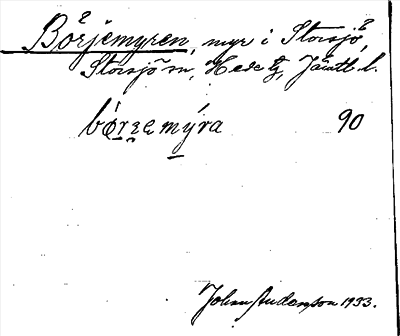 Börjemyren, myr i Storsjö,
Storsjö sn, Hede tg, Jämtl. l.
bórʒemýra 90
Johan Anderson 1933.